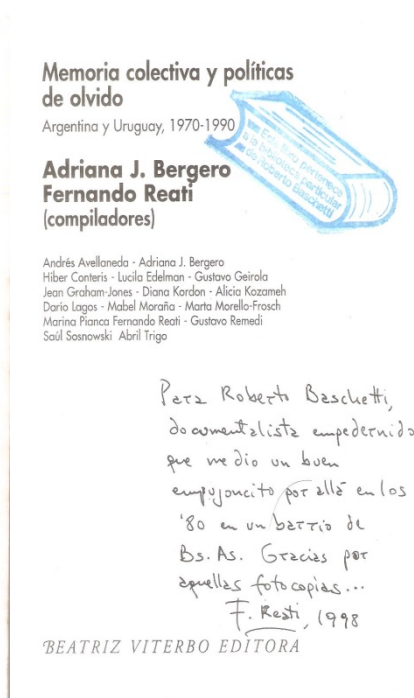 Memoria colectiva y políticas
de olvido
Argentina y Uruguay, 1970-1990
Este libro pertenece
a la biblioteca particular
de Roberto Baschetti
Adriana J. Bergero
Fernando Reati
(compiladores)
Andrés Avellaneda - Adriana J. Bergero
Hiber Conteris - Lucila Edelman - Gustavo Geirola
Jean Graham-Jones - Diana Kordon - Alicia Kozameh
Darío Lagos - Mabel Moraña - Marta Morello-Frosch
Marina Pianca Fernando Reati - Gustavo Remedi
Saúl Sosnowski Abril Trigo
Para Roberto Baschetti,
documentalista empedernido
que me dio un buen
empujoncito por allá en los
'80 en un barrio de
Bs. As. Gracias por
aquellas fotocopias...
F. Reati, 1998
BEATRIZ VITERBO EDITORA